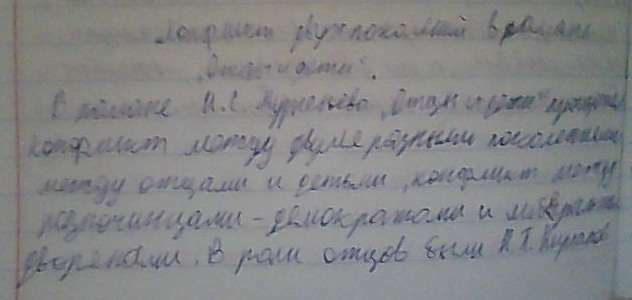 Конфликт двух поколений в романе
"Отцы и дети".
В романе И.С. Тургенева "Отцы и дети"
конфликт между двумя разными поколениями
между отцами и детьми, конфликт между
разночинцами - демократами и
дворянами. В роли отцов были П.П. Кирсанов